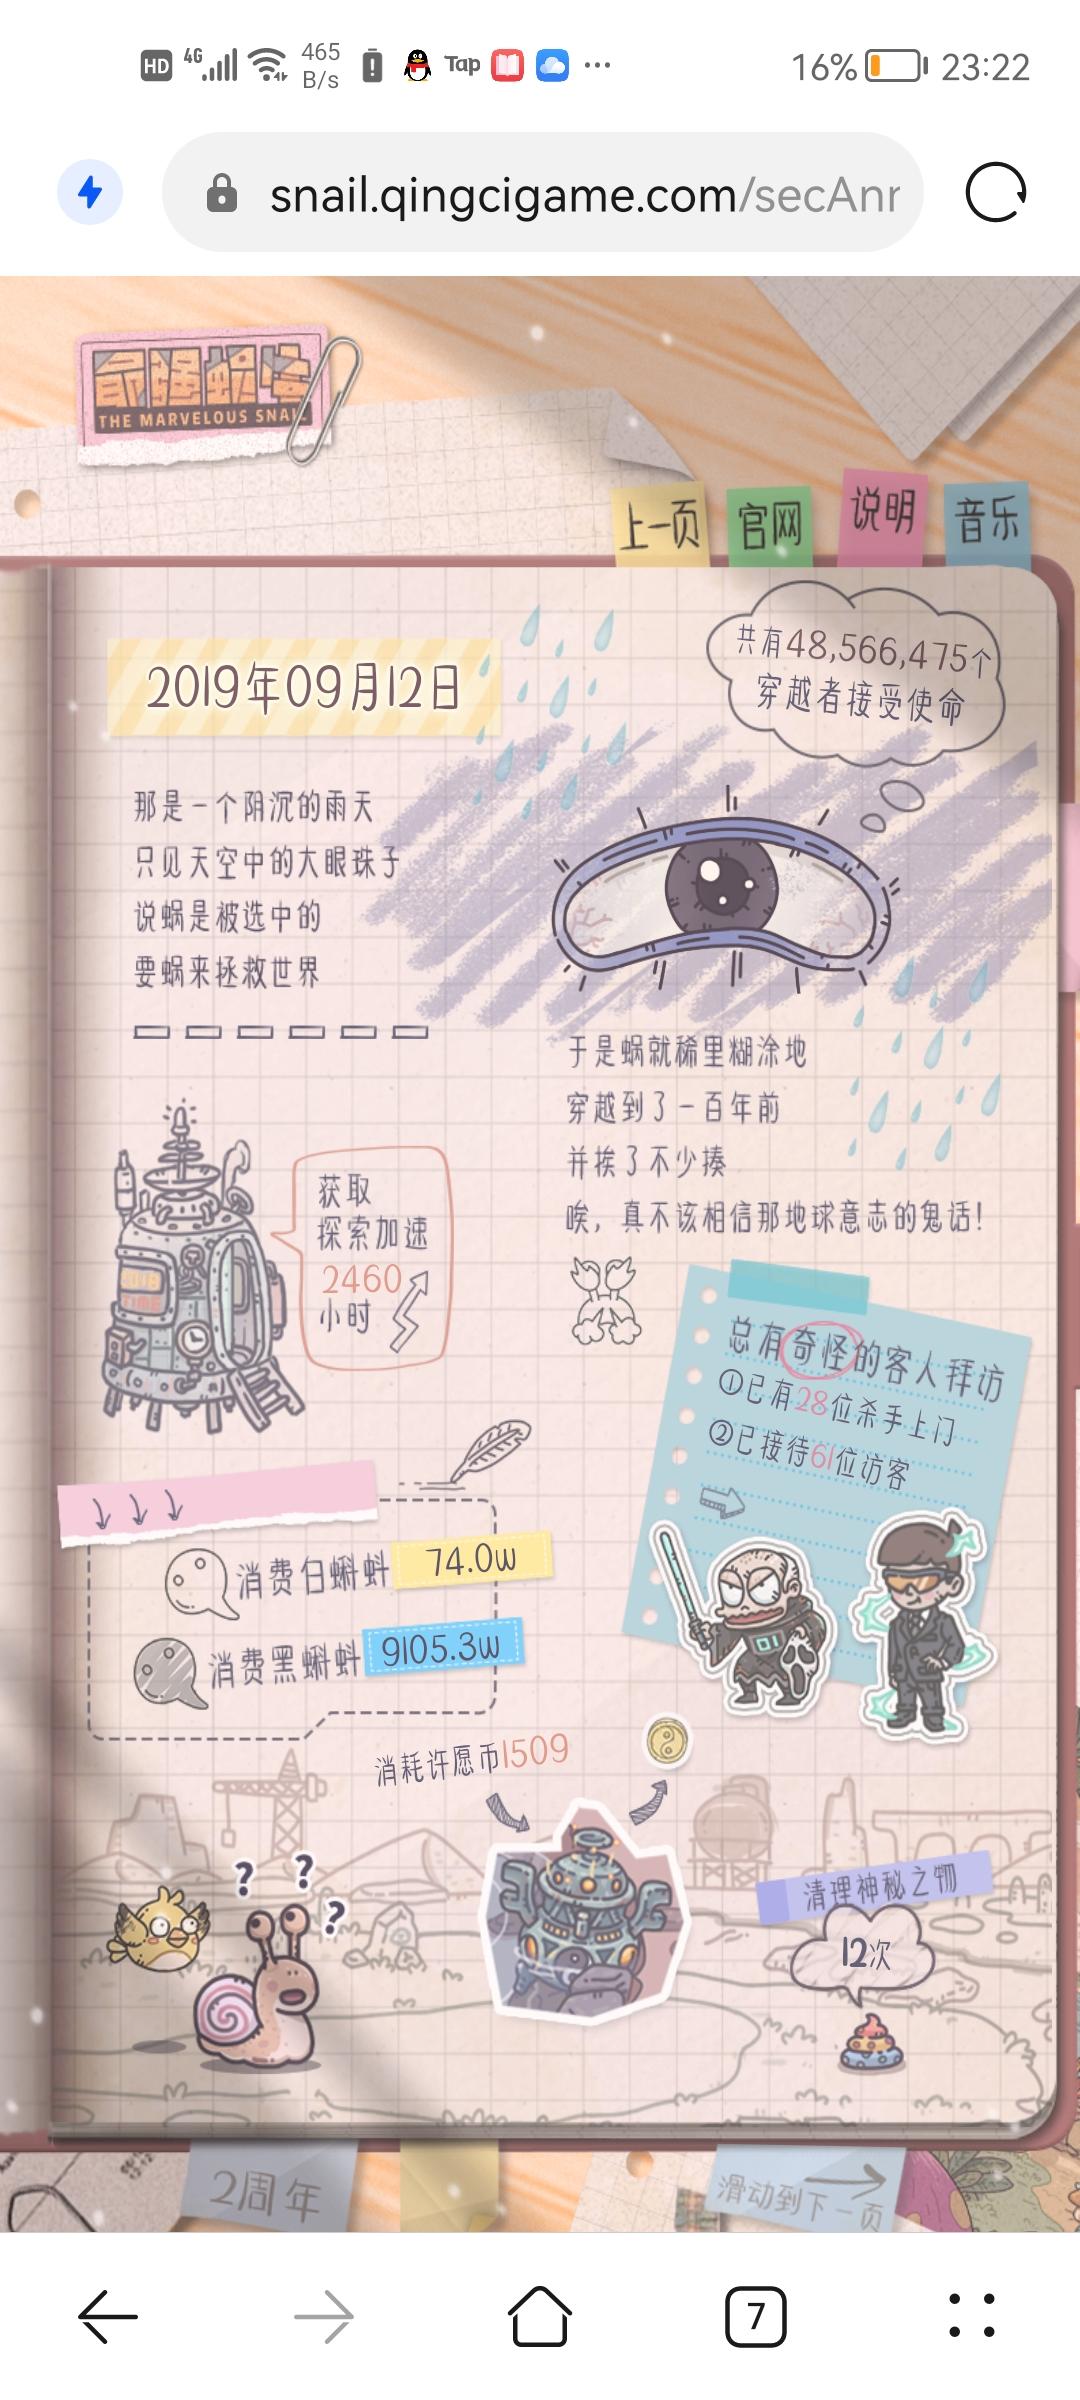 HD 4G 465 B/s Tap 16% 23:22
snail.qingcigame.com/secAnr
最强蜗牛
THE MARVELOUS SNAIL
上一页 官网 说明 音乐
2019年09月12日
共有48,566,475个
穿越者接受使命
那是一个阴沉的雨天
只见天空中的大眼珠子
说蜗是被选中的
要蜗来拯救世界
于是蜗就稀里糊涂地
穿越到了一百年前
并挨了不少揍
唉，真不该相信那地球意志的鬼话！
获取
探索加速
2460
小时
TIME
总有奇怪的客人拜访
①已有28位杀手上门
②已接待61位访客
消费白蝌蚪 74.0w
消费黑蝌蚪 9105.3w
消耗许愿币1509
? ? ?
清理神秘之物
12次
2周年
滑动到下一页
7